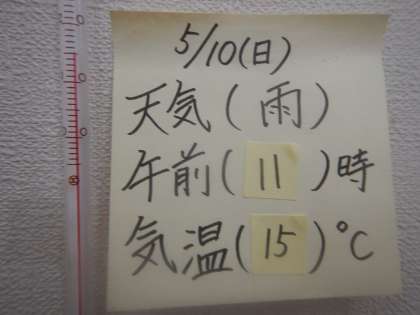 5/10(日)
天気(雨)
午前(11)時
気温(15)℃